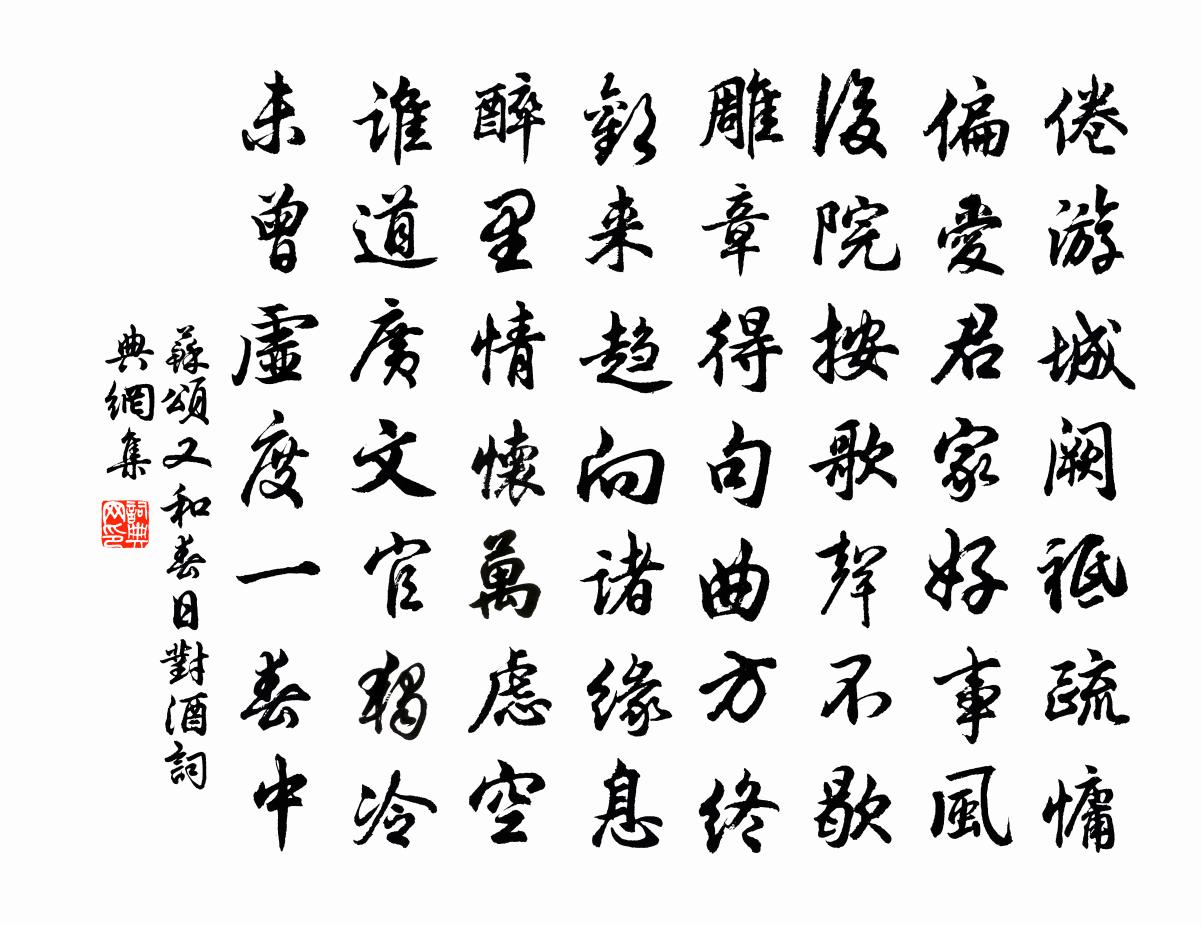 倦游城阙祗疏慵
偏愛君家好事風
後院按歌聲不歇
雕章得句曲方終
歡来趋向諸缘息
醉里情懷萬虑空
谁道廣文官獨冷
未曾虛度一春中
蘇頌又和春日對酒詞
典網集
詞典网印